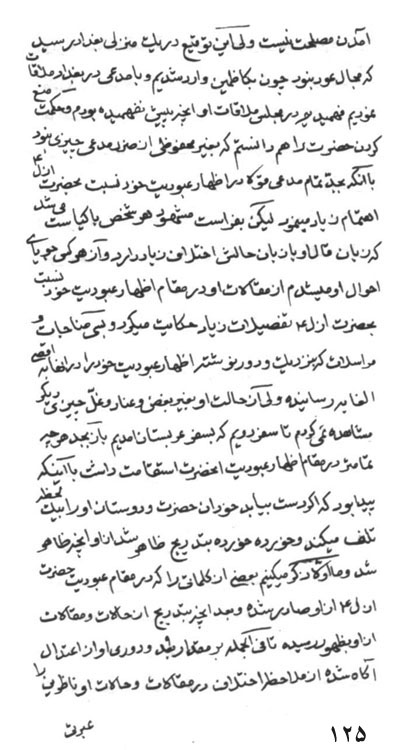 آمدن مصلحت نیست ولی این توقیع در یک منزلی بغداد رسید
که مجال عود نبود چون بکاظمین وارد شدیم و با مدعی در بغداد ملاقات
نمودیم فهمیدم در مجلس ملاقات او آنچه پیش نفهمیده بودم و حکمت منع
کردن حضرت را هم دانستم که بغیر محفوظی از ضر مدعی چیزی نبود
با آنکه بحد تمام مدعی مؤکد در اظهار عبودیت خود نسبت بحضرت ازل ۴
اهتمام زیاد مینمود لیکن بفراست مشهود هر شخص با کیاست میشد
که زبان قال او با زبان حالش اختلاف زیاد دارد و از هر کس جویای
احوال او میشدم از مقالات او در مقام اظهار عبودیت خود نسبت
بحضرت ازل ۴ تفصیلات زیاد حکایت میکرد و بسی مناجات و
مراسلات که بنزدیک و دور نوشته اظهار عبودیت خود را در آنها به اقصی
الغایه رسانیده ولی از حالت او بغیر بغض و عناد و غل چیزی دیگر
مشاهده نمی کردم تا سفر دویم که بسفر عربستان آمدیم باز بجد هر چه
تمامتر در مقام اظهار عبودیت آنحضرت استقامت داشت با آنکه
پیدا بود که اگر دست بیابد خود آن حضرت و دوستان او را بیک لحظه
تلف میکند و خورده خورده بتدریج ظاهر شد از او آنچه ظاهر
شد و ما اولا ذکر میکنیم بعضی از کلماتی را که در مقام عبودیت حضرت
ازل ۴ از او صادر شده و بعد آنچه بتدریج از حالات و مقالات
از او بظهور رسیده تا فی الجمله بر مقدار و دوری او از اعتدال
آگاه شده از ملاحظه اختلاف در مقالات و حالات او ناظرین را
عبرتی
۱۲۵